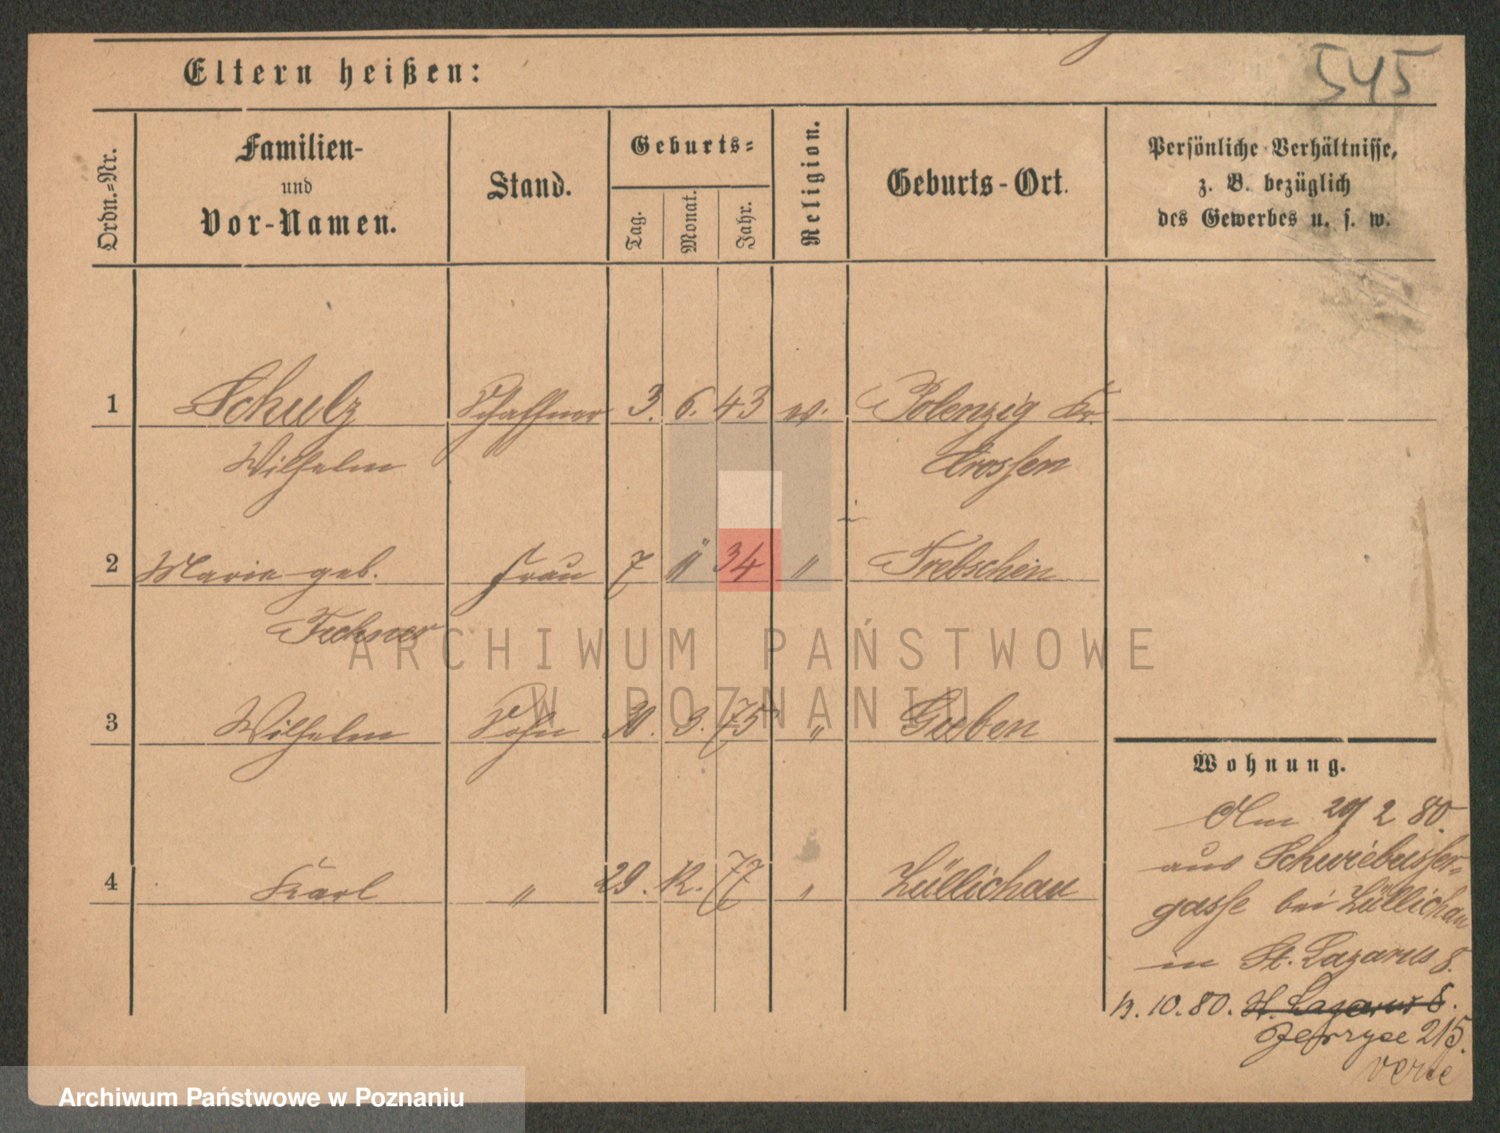 545
Eltern heißen:
Ordn.-Nr.
Familien-
und
Vor-Namen.
Stand.
Geburts-
Tag.
Monat.
Jahr.
Religion.
Geburts-Ort.
Persönliche Verhältnisse,
z. B. bezüglich
des Gewerbes u. s. w.
1 Schulz Schaffner 3. 6. 43 ev. Polenzig Kr.
Wilhelm Crossen
2 Marie geb. Frau 7 " 34 " Trebschen
Fechner
3 Wilhelm Sohn 30. 3. 75 " Guben
4 Karl " 29. 12. 77 " Züllichau
Wohnung.
Am 29/2 80.
aus Schwiebusser-
gasse bei Züllichau
in St. Lazarus 8.
13. 10. 80. St. Lazarus 8.
Jerzyce 215.
verte
ARCHIWUM PAŃSTWOWE
W POZNANIU
Archiwum Państwowe w Poznaniu